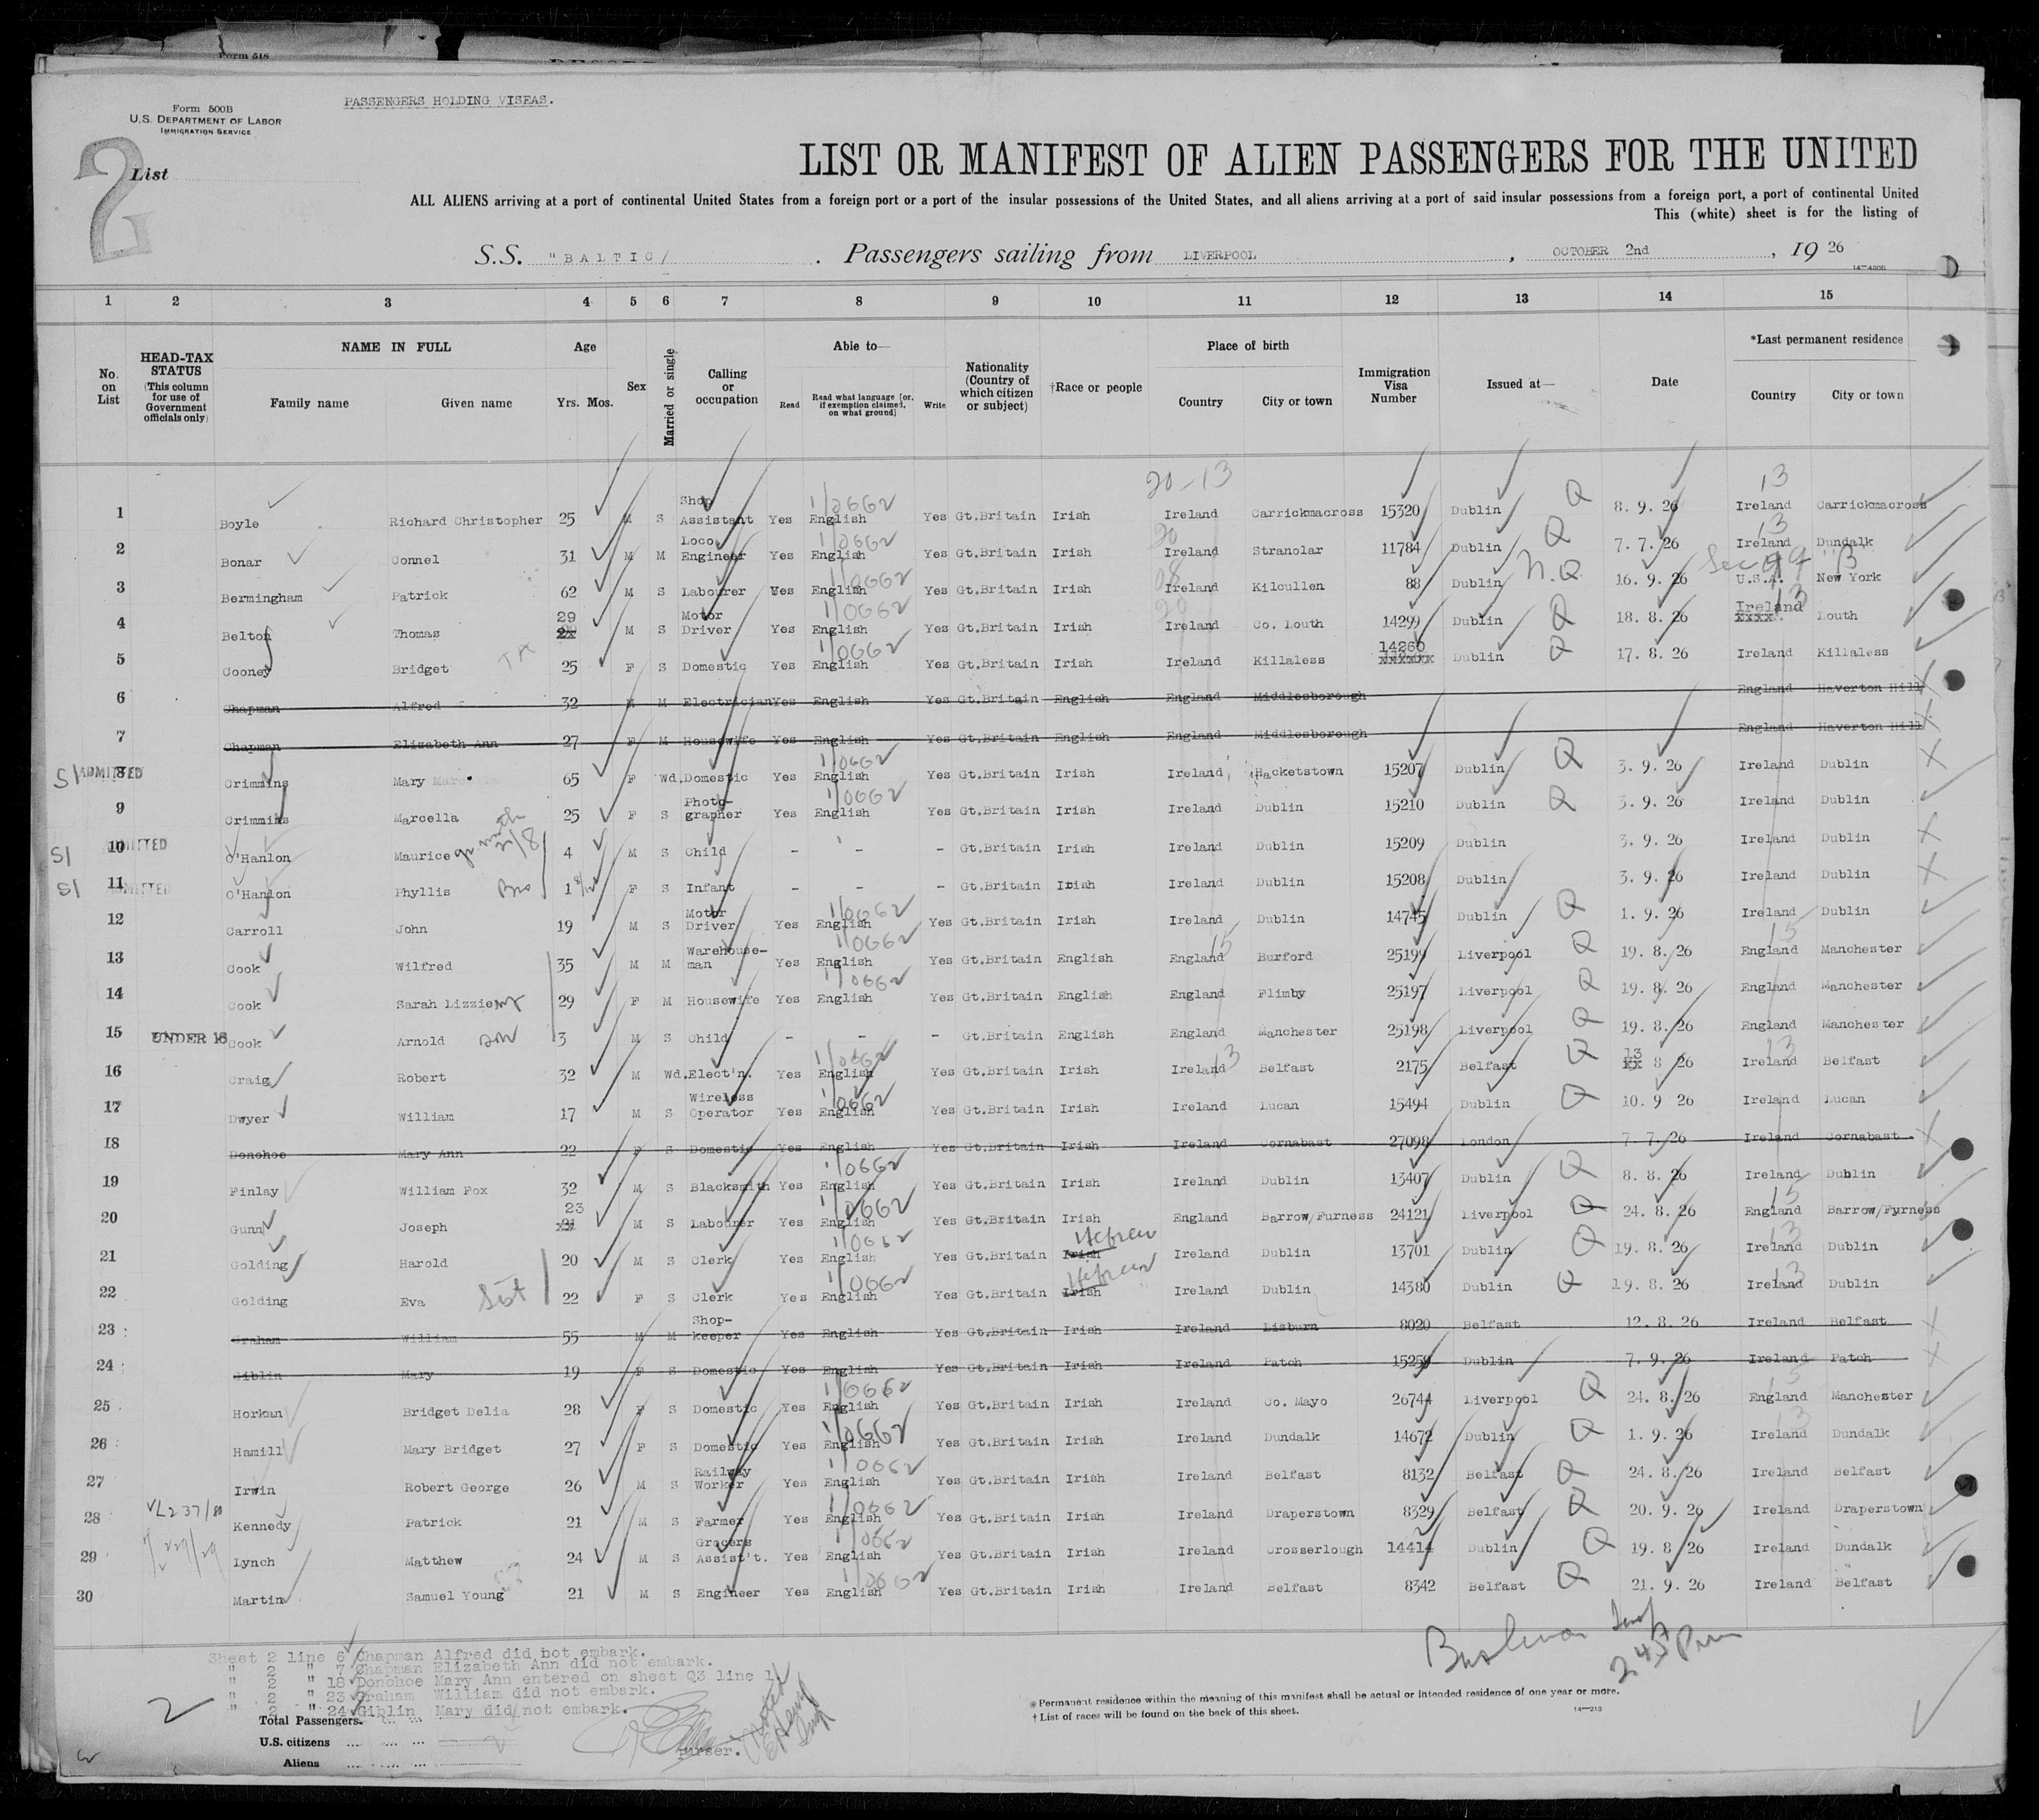 Form 518
Form 500B
U.S. DEPARTMENT OF LABOR
IMMIGRATION SERVICE
PASSENGERS HOLDING VISEAS.
2
List
LIST OR MANIFEST OF ALIEN PASSENGERS FOR THE UNITED
ALL ALIENS arriving at a port of continental United States from a foreign port or a port of the insular possessions of the United States, and all aliens arriving at a port of said insular possessions from a foreign port, a port of continental United
This (white) sheet is for the listing of
S.S. "BALTIC/ . Passengers sailing from LIVERPOOL , OCTOBER 2nd , 19 26
1 2 3 4 5 6 7 8 9 10 11 12 13 14 15
No. on List HEAD-TAX STATUS (This column for use of Government officials only) NAME IN FULL Family name Given name Age Yrs. Mos. Sex Married or single Calling or occupation Able to— Read Read what language [or, if exemption claimed, on what ground] Write Nationality (Country of which citizen or subject) †Race or people Place of birth Country City or town Immigration Visa Number Issued at— Date *Last permanent residence Country City or town
20-13 13
1 Boyle Richard Christopher 25 M S Shop Assistant Yes English Yes Gt.Britain Irish Ireland Carrickmacross 15320 Dublin Q 8. 9. 26 Ireland Carrickmacross
2 Bonar Connel 31 M M Loco. Engineer Yes English Yes Gt.Britain Irish Ireland Stranolar 11784 Dublin Q 7. 7. 26 Ireland Dundalk
3 Bermingham Patrick 62 M S Labourer Yes English Yes Gt.Britain Irish Ireland Kilcullen 88 Dublin N.Q 16. 9. 26 U.S.A. New York
4 Belton Thomas 29 M S Motor Driver Yes English Yes Gt.Britain Irish Ireland Co. Louth 14299 Dublin Q 18. 8. 26 Ireland xxxx Louth
5 Cooney Bridget 25 F S Domestic Yes English Yes Gt.Britain Irish Ireland Killaless 14260 xxxxxx Dublin Q 17. 8. 26 Ireland Killaless
6 Chapman Alfred 32 M M Electrician Yes English Yes Gt.Britain English England Middlesborough England Haverton Hill
7 Chapman Elizabeth Ann 27 F M Housewife Yes English Yes Gt.Britain English England Middlesborough England Haverton Hill
SI ADMITTED 8 Crimmins Mary 65 F Wd. Domestic Yes English Yes Gt.Britain Irish Ireland Hacketstown 15207 Dublin Q 3. 9. 26 Ireland Dublin
9 Crimmins Marcella 25 F S Photo-grapher Yes English Yes Gt.Britain Irish Ireland Dublin 15210 Dublin Q 3. 9. 26 Ireland Dublin
SI ADMITTED 10 O'Hanlon Maurice 4 M S Child - - - Gt.Britain Irish Ireland Dublin 15209 Dublin 3. 9. 26 Ireland Dublin
SI ADMITTED 11 O'Hanlon Phyllis 1 F S Infant - - - Gt.Britain Irish Ireland Dublin 15208 Dublin 3. 9. 26 Ireland Dublin
12 Carroll John 19 M S Motor Driver Yes English Yes Gt.Britain Irish Ireland Dublin 14745 Dublin Q 1. 9. 26 Ireland Dublin
13 Cook Wilfred 35 M M Warehouse-man Yes English Yes Gt.Britain English England Burford 25199 Liverpool Q 19. 8. 26 England Manchester
14 Cook Sarah Lizzie 29 F M Housewife Yes English Yes Gt.Britain English England Flimby 25197 Liverpool Q 19. 8. 26 England Manchester
15 UNDER 16 Cook Arnold son 3 M S Child - - - Gt.Britain English England Manchester 25198 Liverpool Q 19. 8. 26 England Manchester
16 Craig Robert 32 M Wd. Elect'n. Yes English Yes Gt.Britain Irish Ireland Belfast 2175 Belfast Q 13 8 26 Ireland Belfast
17 Dwyer William 17 M S Wireless Operator Yes English Yes Gt.Britain Irish Ireland Lucan 15494 Dublin Q 10. 9 26 Ireland Lucan
18 Donohoe Mary Ann 22 F S Domestic Yes English Yes Gt.Britain Irish Ireland Cornabast 27098 London 7. 7. 26 Ireland Cornabast
19 Finlay William Fox 32 M S Blacksmith Yes English Yes Gt.Britain Irish Ireland Dublin 13407 Dublin Q 8. 8. 26 Ireland Dublin
20 Gunn Joseph 23 M S Labourer Yes English Yes Gt.Britain Irish England Barrow/Furness 24121 Liverpool Q 24. 8. 26 England Barrow/Furness
21 Golding Harold 20 M S Clerk Yes English Yes Gt.Britain Irish Hebrew Ireland Dublin 13701 Dublin Q 19. 8. 26 Ireland Dublin
22 Golding Eva Sist 22 F S Clerk Yes English Yes Gt.Britain Irish Hebrew Ireland Dublin 14380 Dublin Q 19. 8. 26 Ireland Dublin
23 Graham William 55 M M Shop-keeper Yes English Yes Gt.Britain Irish Ireland Lisburn 8020 Belfast 12. 8. 26 Ireland Belfast
24 Giblin Mary 19 F S Domestic Yes English Yes Gt.Britain Irish Ireland Patch 15259 Dublin 7. 9. 26 Ireland Patch
25 Horkan Bridget Delia 28 F S Domestic Yes English Yes Gt.Britain Irish Ireland Co. Mayo 26744 Liverpool Q 24. 8. 26 England Manchester
26 Hamill Mary Bridget 27 F S Domestic Yes English Yes Gt.Britain Irish Ireland Dundalk 14672 Dublin Q 1. 9. 26 Ireland Dundalk
27 Irwin Robert George 26 M S Railway Worker Yes English Yes Gt.Britain Irish Ireland Belfast 8132 Belfast Q 24. 8. 26 Ireland Belfast
28 Kennedy Patrick 21 M S Farmer Yes English Yes Gt.Britain Irish Ireland Draperstown 8329 Belfast Q 20. 9. 26 Ireland Draperstown
29 Lynch Matthew 24 M S Grocers Assist't. Yes English Yes Gt.Britain Irish Ireland Crosserlough 14414 Dublin Q 19. 8 26 Ireland Dundalk
30 Martin Samuel Young 21 M S Engineer Yes English Yes Gt.Britain Irish Ireland Belfast 8342 Belfast Q 21. 9. 26 Ireland Belfast
Sheet 2 line 6 Chapman Alfred did not embark.
" 2 " 7 Chapman Elizabeth Ann did not embark.
" 2 " 18 Donohoe Mary Ann entered on sheet Q3 line 1
" 2 " 23 Graham William did not embark.
" 2 " 24 Giblin Mary did not embark.
Total Passengers
U.S. citizens
Aliens
Purser.
*Permanent residence within the meaning of this manifest shall be actual or intended residence of one year or more.
†List of races will be found on the back of this sheet.
14—213